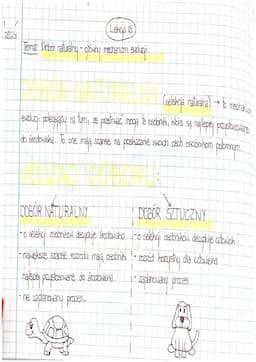 Lekcja 15
Temat: Dobór naturalny - główny mechanizm ewolucji.
DOBÓR NATURALNY (selekcja naturalna) → to mechanizm
ewolucji polegający na tym, że przeżyć mogą te osobniki, które są najlepiej przystosowane
do środowiska. To one mają szansę na przekazanie swoich cech osobnikom potomnym.
DOBORU:
DOBÓR NATURALNY
- o selekcji osobników decyduje środowisko
- największe szanse rozrodu mają osobniki
najlepiej przystosowane do środowiska.
- nie zaplanowany proces.
DOBÓR SZTUCZNY
- o selekcji osobników decyduje człowiek
- rozród korzystny dla człowieka
- zaplanowany proces